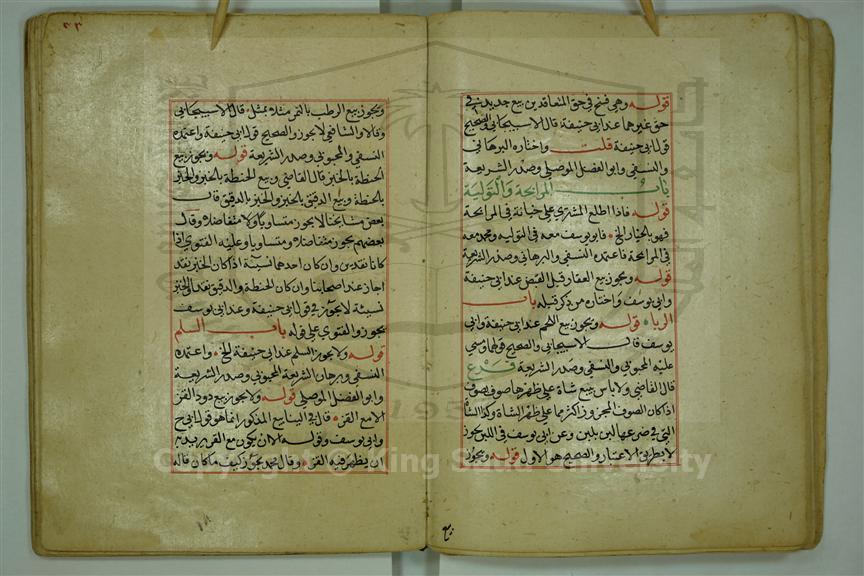 قوله وهي فسخ في حق المتعاقدين بيع جديد في
حق غيرهما عند ابي حنيفة قال الاسبيجابي والصحيح
قول ابي حنيفة قلت واختاره البرهاني
والنسفي وابو الفضل الموصلي وصدر الشريعة
باب المرابحة والتولية
قوله فاذا اطلع المشتري على خيانة في المرابحة
فهو بالخيار الخ فابو يوسف معه في التوليه ومحمد معه
في المرابحة فاعتمده النسفي والبرهاني وصدر الشريعة
قوله ويجوز بيع العقار قبل القبض عند ابي حنيفة
وابي يوسف واختاره من ذكر قبله باب
الربا قوله ويجوز بيع اللحم عند ابي حنيفة وابي
يوسف قال الاسبيجابي والصحيح قولهما ومشي
عليه المحبوبي والنسفي وصدر الشريعة فرع
قال القاضي ولا باس ببيع شاة على ظهرها صوف بصوف
اذا كان الصوف المجزوز اكثر مما على ظهر الشاة وكذا الشاة
التي في ضرعها لبن بلبن وعن ابي يوسف في اللبن يجوز
لا بطريق الاعتبار والصحيح هو الاول قوله ويجوز
٣٣
ويجوز بيع الرطب بالتمر مثلا بمثل قال الاسبيجابي
وقالا والشافعي لا يجوز والصحيح قول ابي حنيفة واعتمده
النسفي والمحبوبي وصدر الشريعة قوله ويجوز بيع
الحنطة بالخبز قال القاضي وبيع الحنطة بالخبز والخبز
بالحنطة وبيع الدقيق بالخبز والخبز بالدقيق قال
بعض مشايخنا لا يجوز متساويا ولا متفاضلا وقال
بعضهم يجوز متفاضلا ومتساويا وعليه الفتوي اذا
كانا نقدين وان كان احدهما نسيئة اذا كان الخبز نقد
اجاز عند اصحابنا وان كان الحنطة والدقيق نقدا والخبز
نسيئة لا يجوز في قول ابي حنيفة وعند ابي يوسف
يجوز والفتوي على قوله باب السلم
قوله ولا يجوز السلم عند ابي حنيفة الخ واعتمده
النسفي وبرهان الشريعة المحبوبي وصدر الشريعة
وابو الفضل الموصلي قوله ولا يجوز بيع دود القز
الا مع القز قال في الينابيع المذكور انما هو قول ابي ح
وابي يوسف وقوله الا ان يكون مع القز يريد به
ان يظهر فيه القز وقال محمد يجوز كيف ما كان قاله
Copyright © King Saud University
195